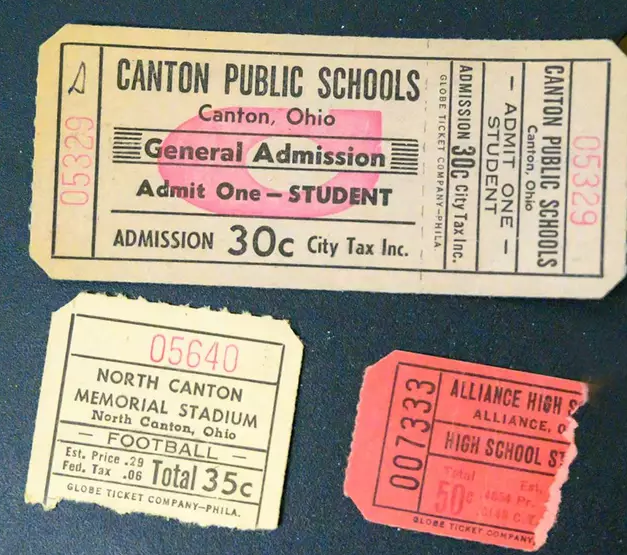 05329
CANTON PUBLIC SCHOOLS
Canton, Ohio
General Admission
Admit One — STUDENT
ADMISSION 30c City Tax Inc.
GLOBE TICKET COMPANY—PHILA.
ADMISSION 30c City Tax Inc.
— ADMIT ONE —
STUDENT
CANTON PUBLIC SCHOOLS
Canton, Ohio
05329
05640
NORTH CANTON
MEMORIAL STADIUM
North Canton, Ohio
— FOOTBALL —
Est. Price .29
Fed. Tax .06
Total 35c
GLOBE TICKET COMPANY—PHILA.
007333
ALLIANCE HIGH S
ALLIANCE, O
HIGH SCHOOL ST
Total
50c
Est.
.4854 Pr.
C. T.
GLOBE TICKET COMPANY